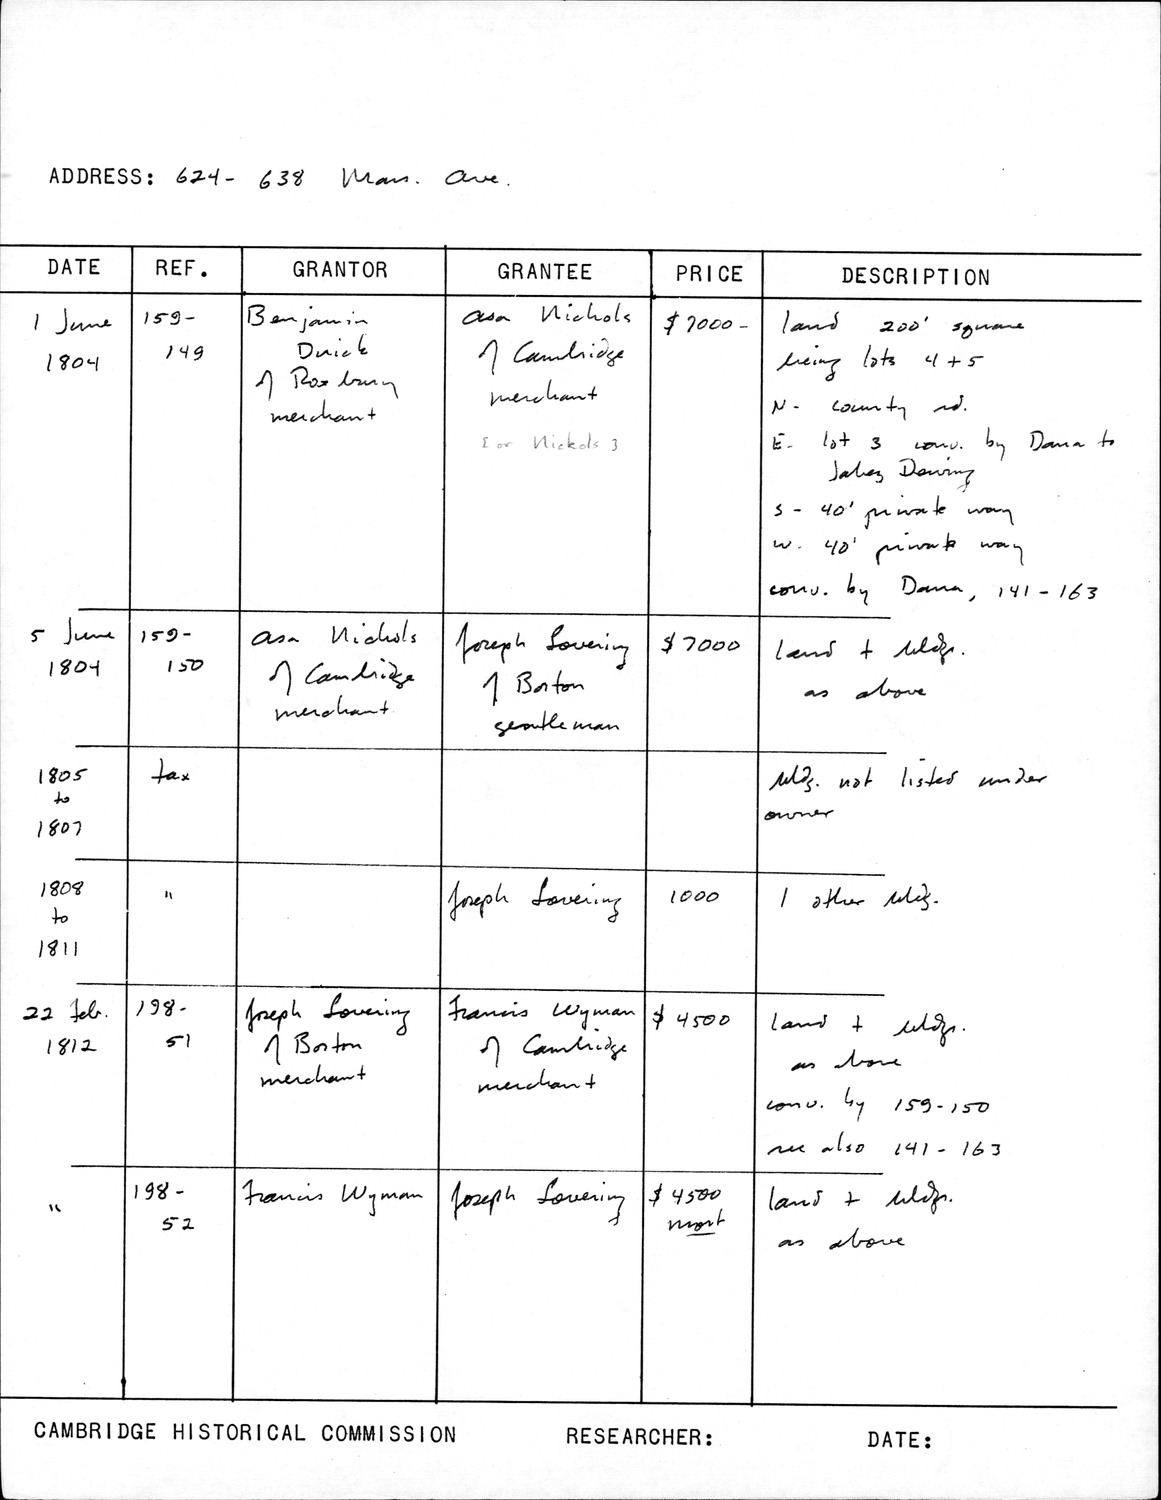 ADDRESS: 624- 638 Mass. Ave.
DATE REF. GRANTOR GRANTEE PRICE DESCRIPTION
1 June
1804
159-
149
Benjamin
of Roxbury
merchant
Asa Nichols
of Cambridge
merchant
[or Nickols]
$7000-
land 200' square
being lots 4 + 5
N- county rd.
E- lot 3 conv. by Dana to
Jabez
S- 40' private way
W. 40' private way
conv. by Dana, 141-163
5 June
1804
159-
150
Asa Nichols
of Cambridge
merchant
Joseph Lovering
of Boston
gentleman
$7000
land + bldgs.
as above
1805
to
1807
tax
bldg. not listed under
owner
1808
to
1811
"
Joseph Lovering
1000
1 other bldg.
22 Feb.
1812
198-
51
Joseph Lovering
of Boston
merchant
Francis Wyman
of Cambridge
merchant
$4500
land + bldgs.
as above
conv. by 159-150
see also 141-163
"
198-
52
Francis Wyman
Joseph Lovering
$4500
mort
land + bldgs.
as above
CAMBRIDGE HISTORICAL COMMISSION RESEARCHER: DATE: